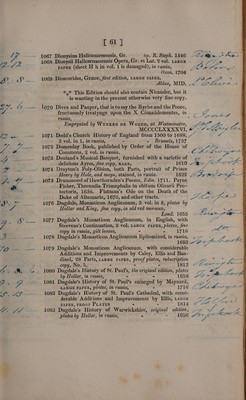 [ 61 ]
1067 Dionysius Halicarnassensis, Gr. ap. R. Steph. 1546
1068 Dionysii Halicarnassensis Opera, Gr. et Lat. 2 vol. LARGE
PAPER (sheet H h in vol. 1 is damaged), in russia,
Oxon. 1704
1069 Dioscorides, Græce, first edition, LARGE PAPER,
Aldus, MID.
*** This Edition should also contain Nicander, but it
is wanting in the present otherwise very fine copy.
1070 Dives and Pauper, that is to say the Ryche and the Poore,
fructuously treatynge upon the X Comandementes, in
russia,
Emprynted by Wynken de Worde, at Westmonstre,
MCCCCLXXXXVI.
1071 Dodd's Church History of England from 1500 to 1688,
3 vol. in 1, in russia, Brussels, 1737
1072 Domesday Book, published by Order of the House of
Commons, 2 vol. in russia.
1073 Dorland's Musical Banquet, furnished with a varietie of
delicious Ayres, fine copy, RARE, 1610
1074 Drayton's Poly-Olbion, both Parts, portrait of Prince
Henry by Hole, and maps, stained, in russia 1622
1075 Drummond of Hawthornden's Poems, Edin. 1711. Payne
Fisher, Threnodia Triumphalis in obitum Olivarii Pro-
tectoris, 1658. Flatman's Ode on the Death of the
Duke of Albemarle, 1670, and other tracts.
1076 Dugdale, Monasticon Anglicanum, 3 vol. fr. plates by
Hollar and King, fine copy in old red morocco,
Lond. 1655
1077 Dugdale's Monasticon Anglicanum, in English, with
Stevens's Continuation, 3 vol. LARGE PAPER, plates, fine
copy in russia, gilt leaves, 1718
1078 Dugdale's Monasticon Anglicanum Epitomized, in russia,
1693
1079 Dugdale's Monasticon Anglicanum, with considerable
Additions and Improvements by Caley, Ellis and Ban-
dinel, 28 Parts, LARGE PAPER, proof plates, subscription
copy, No. 5, 1813
1080 Dugdale's History of St. Paul's, the original edition, plates
by Hollar, in russia, 1658
1081 Dugdale's History of St. Paul's enlarged by Maynard,
LARGE PAPER, plates, in russia, 1716
1082 Dugdale's History of St. Paul's Cathedral, with consi-
derable Additions and Improvements by Ellis, LARGE
PAPER, PROOF PLATES 1814
1083 Dugdale's History of Warwickshire, original edition,
plates by Hollar, in russia, 1656